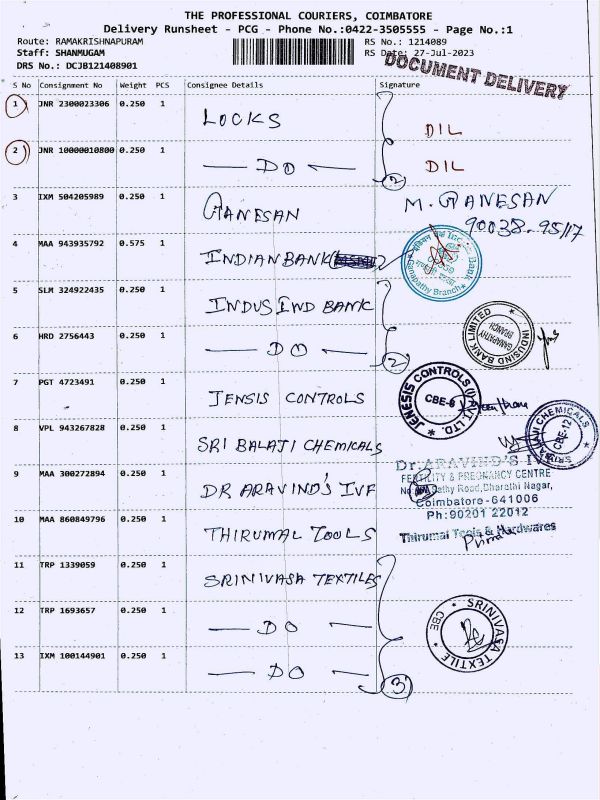 THE PROFESSIONAL COURIERS, COIMBATORE
Delivery Runsheet - PCG - Phone No.:0422-3505555 - Page No.:1
Route: RAMAKRISHNAPURAM RS No.: 1214089
Staff: SHANMUGAM RS Date: 27-Jul-2023
DRS No.: DCJB121408901
DOCUMENT DELIVERY
S No Consignment No Weight PCS Consignee Details Signature
1 JNR 2300023306 0.250 1 LOCKS DIL
2 JNR 10000010800 0.250 1 — DO — DIL
2
3 IXM 504205989 0.250 1 GANESAN M. GANESAN
90038-95117
4 MAA 943935792 0.575 1 INDIAN BANK
Ganapathy Branch
5 SLM 324922435 0.250 1 INDUS IND BANK
6 HRD 2756443 0.250 1 — DO —
2
INDUSIND BANK LIMITED
GANAPATHY BRANCH
7 PGT 4723491 0.250 1 JENSIS CONTROLS
JENESIS CONTROLS (I) PVT LTD.
CBE-6
8 VPL 943267828 0.250 1 SRI BALAJI CHEMICALS
CHEMICALS
CBE-12
9 MAA 300272894 0.250 1 DR ARAVIND'S IVF
Dr. ARAVIND'S IVF
FERTILITY & PREGNANCY CENTRE
Road, Bharathi Nagar,
Coimbatore-641006
Ph:90201 22012
10 MAA 860849796 0.250 1 THIRUMAL TOOLS
Thirumal Tools & Hardwares
11 TRP 1339059 0.250 1 SRINIVASA TEXTILES
12 TRP 1693657 0.250 1 — DO —
SRINIVASA TEXTILE
CBE
13 IXM 100144901 0.250 1 — DO —
3